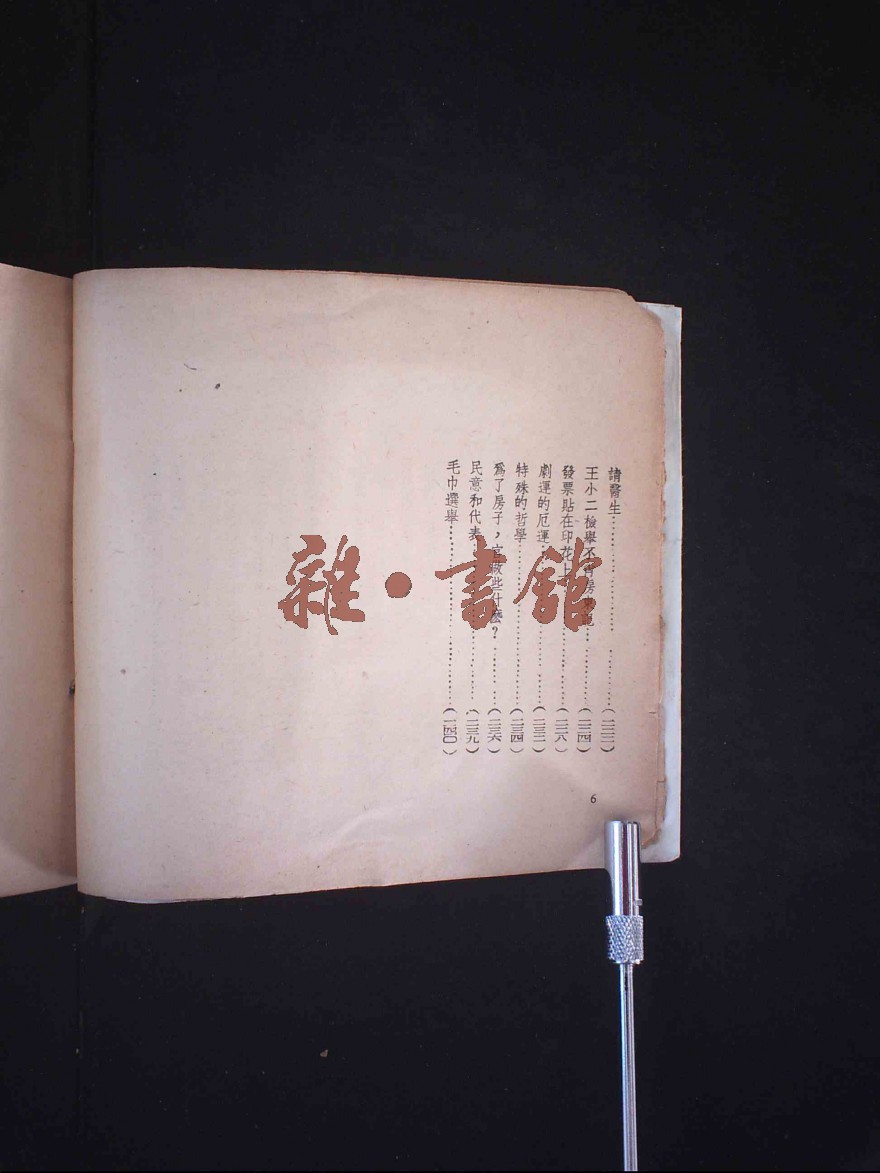 請醫生……………………(一二二)
王小二檢舉不
發票貼在印花上……………………(一二八)
劇運的厄運……………………(一三二)
特殊的哲學……………………(一三四)
爲了房子，官做些什麼？……………(一三六)
民意和代表……………………(一三九)
毛巾選舉……………………(一四〇)
6
雜·書館